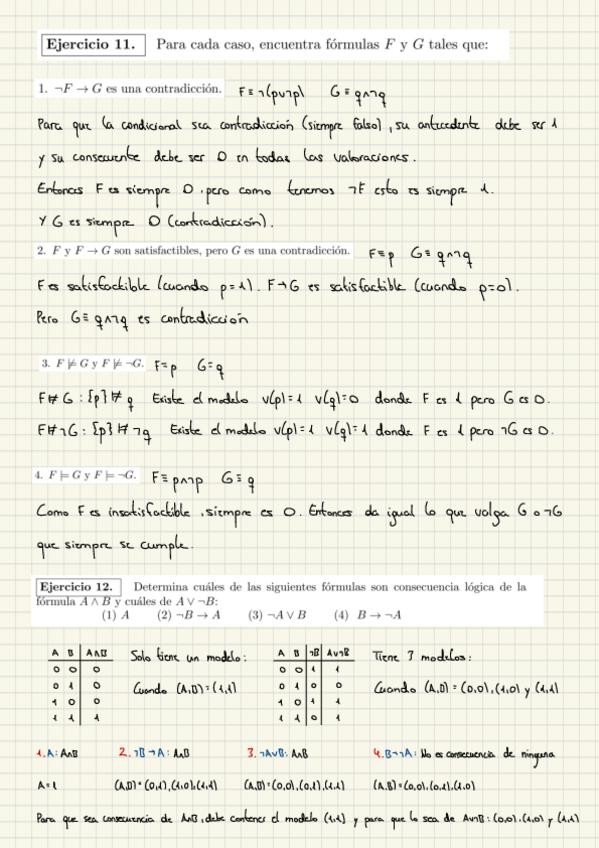 Ejercicio 11. Para cada caso, encuentra fórmulas F y G tales que:
1. ¬F → G es una contradicción. F≡¬(p∨¬p) G≡q∧¬q
Para que la condicional sea contradicción (siempre falso), su antecedente debe ser 1
y su consecuente debe ser 0 en todas las valoraciones.
Entonces F es siempre 0, pero como tenemos ¬F esto es siempre 1.
Y G es siempre 0 (contradicción).
2. F y F → G son satisfactibles, pero G es una contradicción. F≡p G≡q∧¬q
F es satisfactible (cuando p=1). F→G es satisfactible (cuando p=0).
Pero G≡q∧¬q es contradicción
3. F ⊭ G y F ⊭ ¬G. F≡p G≡q
F⊭G: {p}⊭q Existe el modelo v(p)=1 v(q)=0 donde F es 1 pero G es 0.
F⊭¬G: {p}⊭¬q Existe el modelo v(p)=1 v(q)=1 donde F es 1 pero ¬G es 0.
4. F ⊨ G y F ⊨ ¬G. F≡p∧¬p G≡q
Como F es insatisfactible, siempre es 0. Entonces da igual lo que valga G o ¬G
que siempre se cumple.
Ejercicio 12. Determina cuáles de las siguientes fórmulas son consecuencia lógica de la
fórmula A ∧ B y cuáles de A ∨ ¬B:
(1) A (2) ¬B → A (3) ¬A ∨ B (4) B → ¬A
A B A∧B Solo tiene un modelo: A B ¬B A∨¬B Tiene 3 modelos:
0 0 0 0 0 1 1
0 1 0 Cuando (A,B)=(1,1) 0 1 0 0 Cuando (A,B)=(0,0),(1,0) y (1,1)
1 0 0 1 0 1 1
1 1 1 1 1 0 1
1.A: A∧B 2.¬B→A: A∧B 3.¬A∨B: A∧B 4.B→¬A: No es consecuencia de ninguna
A=1 (A,B)=(0,1),(1,0),(1,1) (A,B)=(0,0),(0,1),(1,1) (A,B)=(0,0),(0,1),(1,0)
Para que sea consecuencia de A∧B, debe contener el modelo (1,1) y para que lo sea de A∨¬B: (0,0),(1,0) y (1,1)